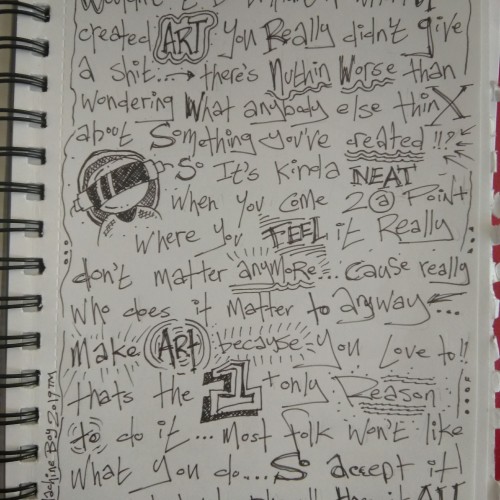 created ART you Really didn't give
a shit.. → there's Nuthin Worse than
wondering What anybody else thinX
about Something you've created!!?
So It's Kinda NEAT
When you come 2 a Point
Where you FEEL it Really
don't matter anymore... Cause really
Who does it matter to anyway...
make ART because you Love to!!
thats the 1 + only Reason
to do it... Most folk Won't like
What you do... So accept it!
Machine Boy 2019™